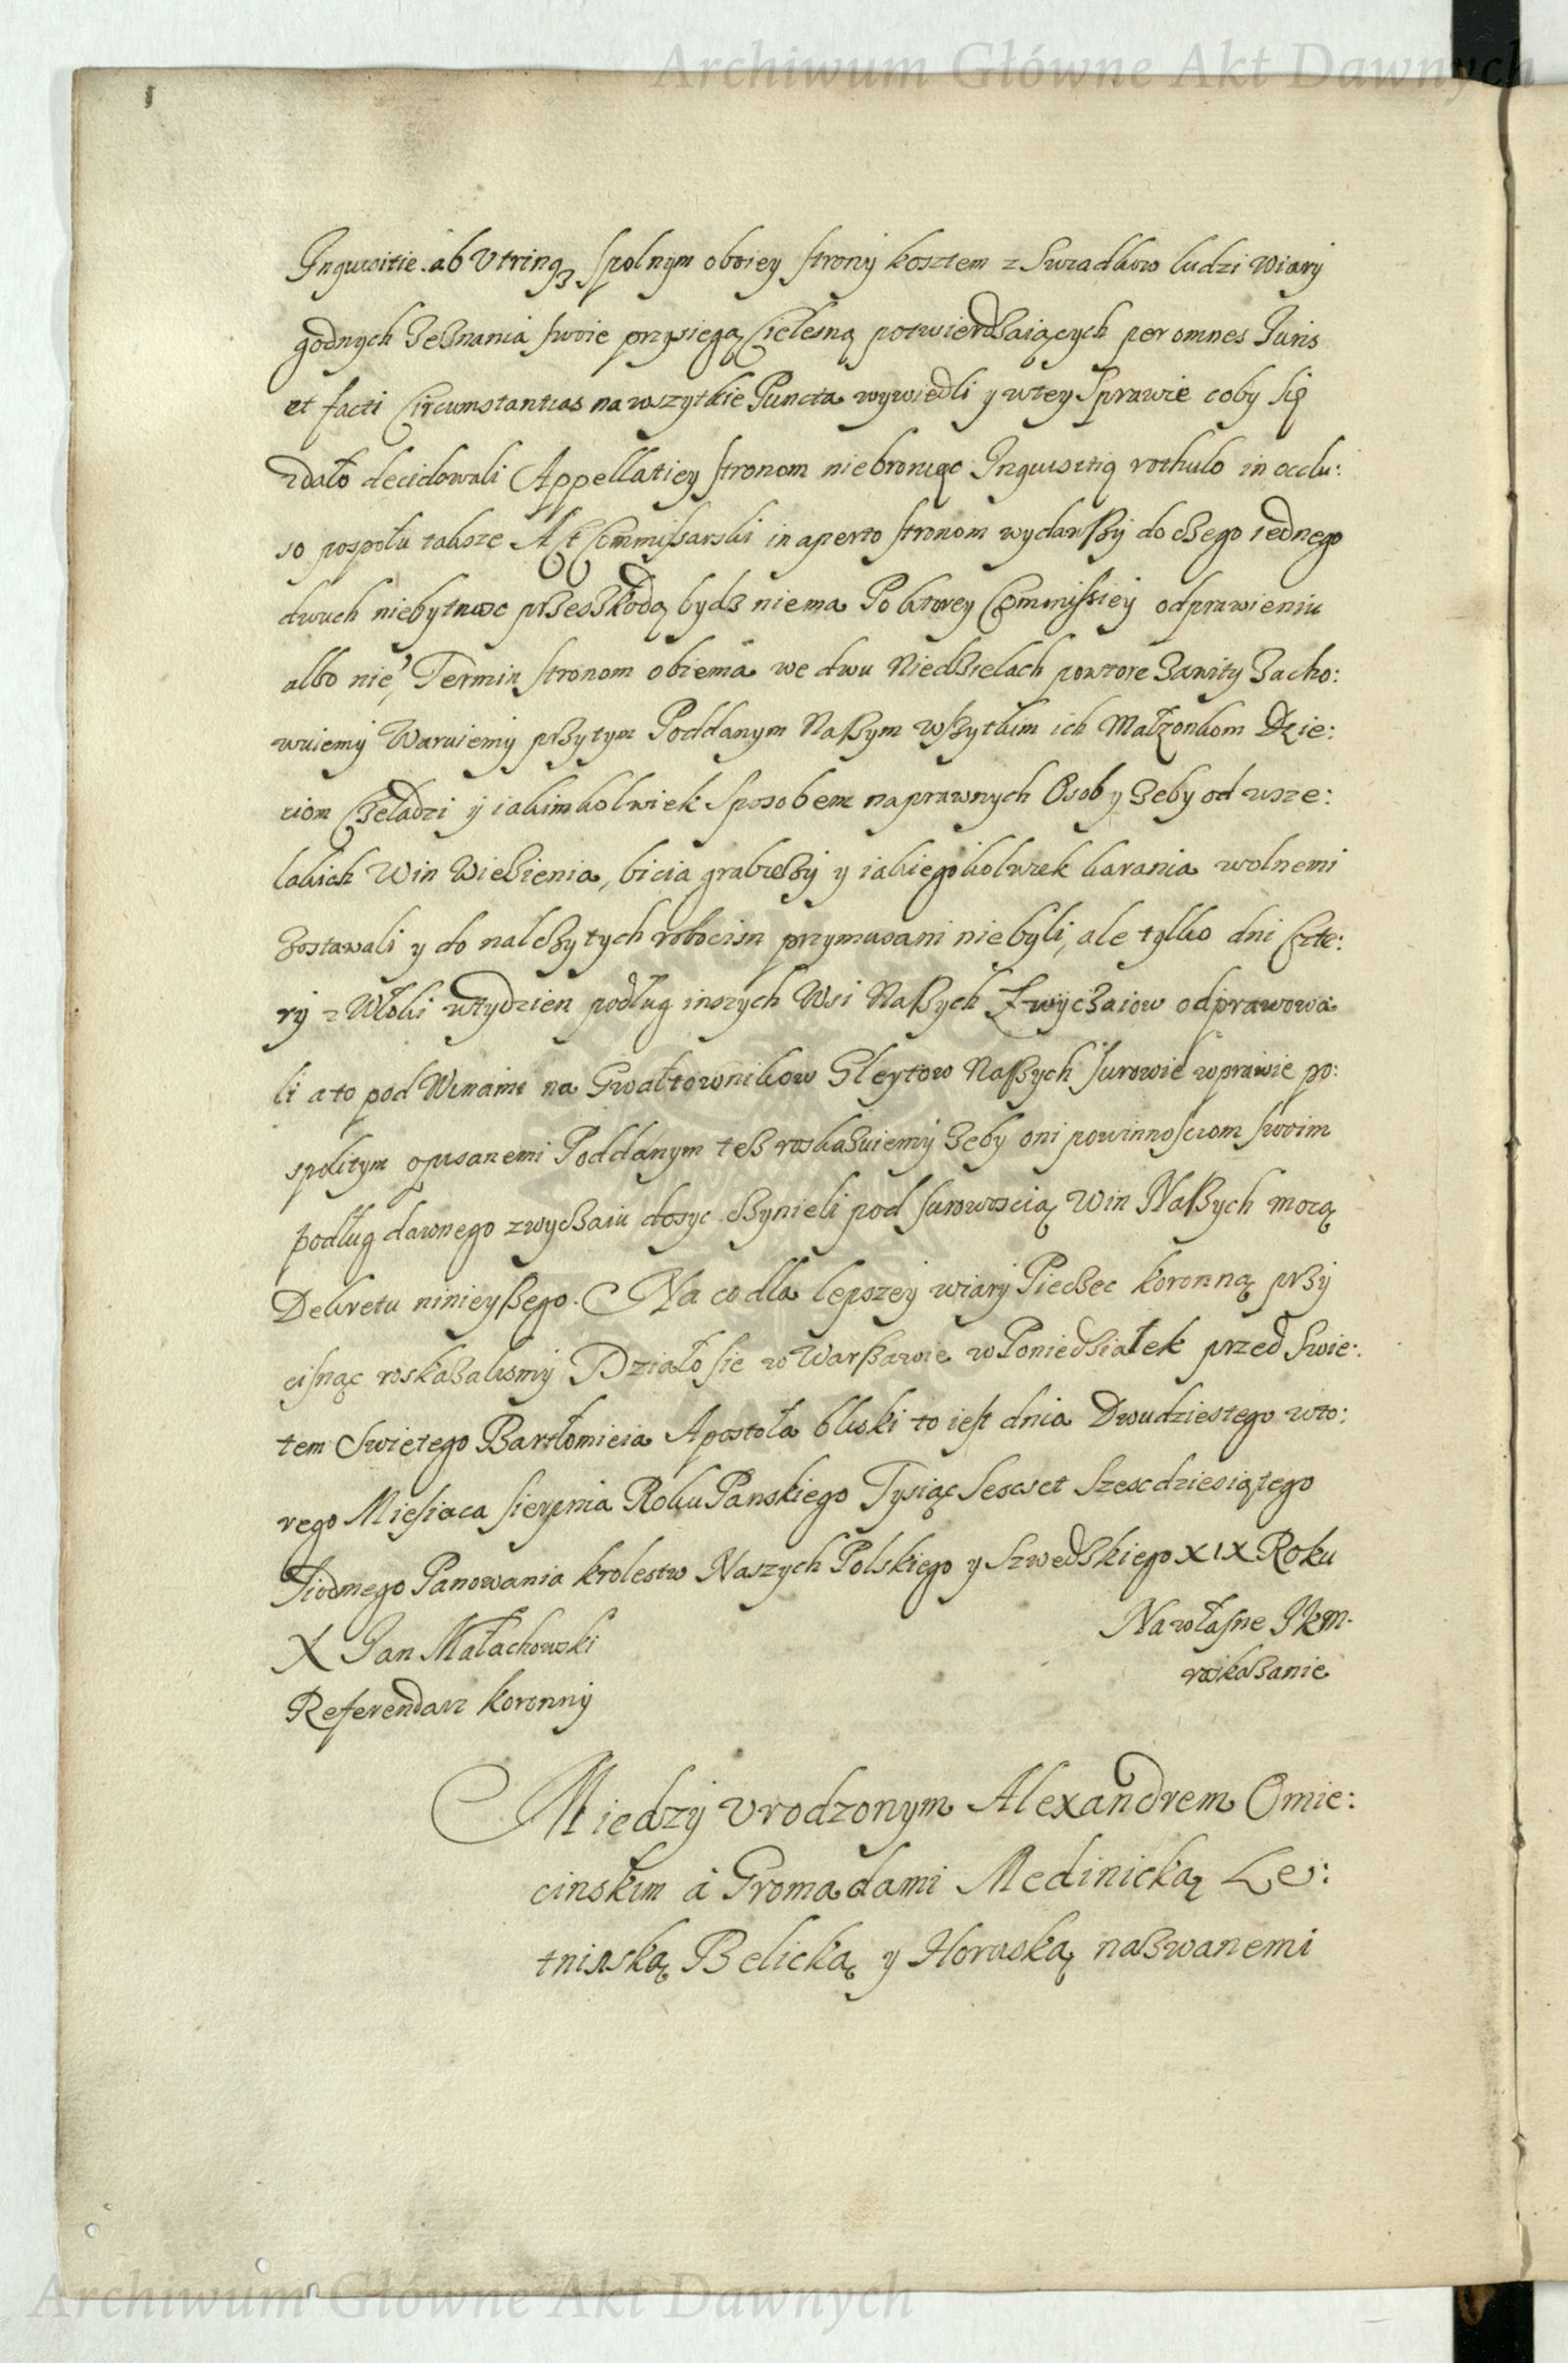 Archiwum Główne Akt Dawnych
Inquisitie ab Utrinq3 spolnym oboiey strony kosztem z Swiadkow ludzi wiary
godnych Zeznania swoie przysięgą Cielesną potwierdzaiących per omnes Juris
et facti Circumstantias na wszytkie Puncta wywiedli y wtey Sprawie coby się
zdało decidowali Appellatiey stronom niebroniąc Inquisitią rothulo in occlu:
so pospołu takze Act Commissarski in aperto stronom wydawszy do czego iednego
dwuch niebytnosc przeszkodą bydz niema Po ktorey Commissiey odprawieniu
albo nie, Termin stronom obiema we dwu Niedzielach powtore Zawity Zacho:
wuiemy Waruiemy przytym Poddanym Naszym wszytkim ich Małzonkom Dzie:
ciom Czeladzi y iakimkolwiek sposobem naprawnych Osob y Zeby od wsze:
lakich Win Wiezienia, bicia grabiezy y iakiegokolwiek karania wolnemi
Zostawali y do nalezytych robocizn przymuszani niebyli, ale tylko dni Czte:
ry z Włoki wtydzien podług inszych Wsi Naszych Zwyczaiow odprawowa
li a to pod Winami na Gwałtownikow Gleytow Naszych surowie wprawie po:
spolitym opisanemi Poddanym tez roskazuiemy Zeby oni powinnosciom swoim
podług dawnego zwyczaiu dosyc czynieli pod surowoscią Win Naszych mocą
Dekretu ninieyszego. Na co dla lepszey wiary Pieczec koronną przy
cisnąc roskazalismy Działo sie w Warszawie w Poniedziałek przed Swie:
tem Swietego Bartłomieia Apostoła bliski to iest dnia Dwudziestego wto:
rego Miesiaca sierpnia Roku Panskiego Tysiąc Sescset Szescdziesiątego
Siodmego Panowania krolestw Naszych Polskiego y Szwedskiego XIX Roku
X Jan Małachowski
Referendarz koronny
Na własne J k m.
roskazanie
Miedzy Urodzonym Alexandrem Omie:
cinskim á Gromadami Medinicką Le:
tninską Belicką y Horuską nazwanemi
Archiwum Główne Akt Dawnych